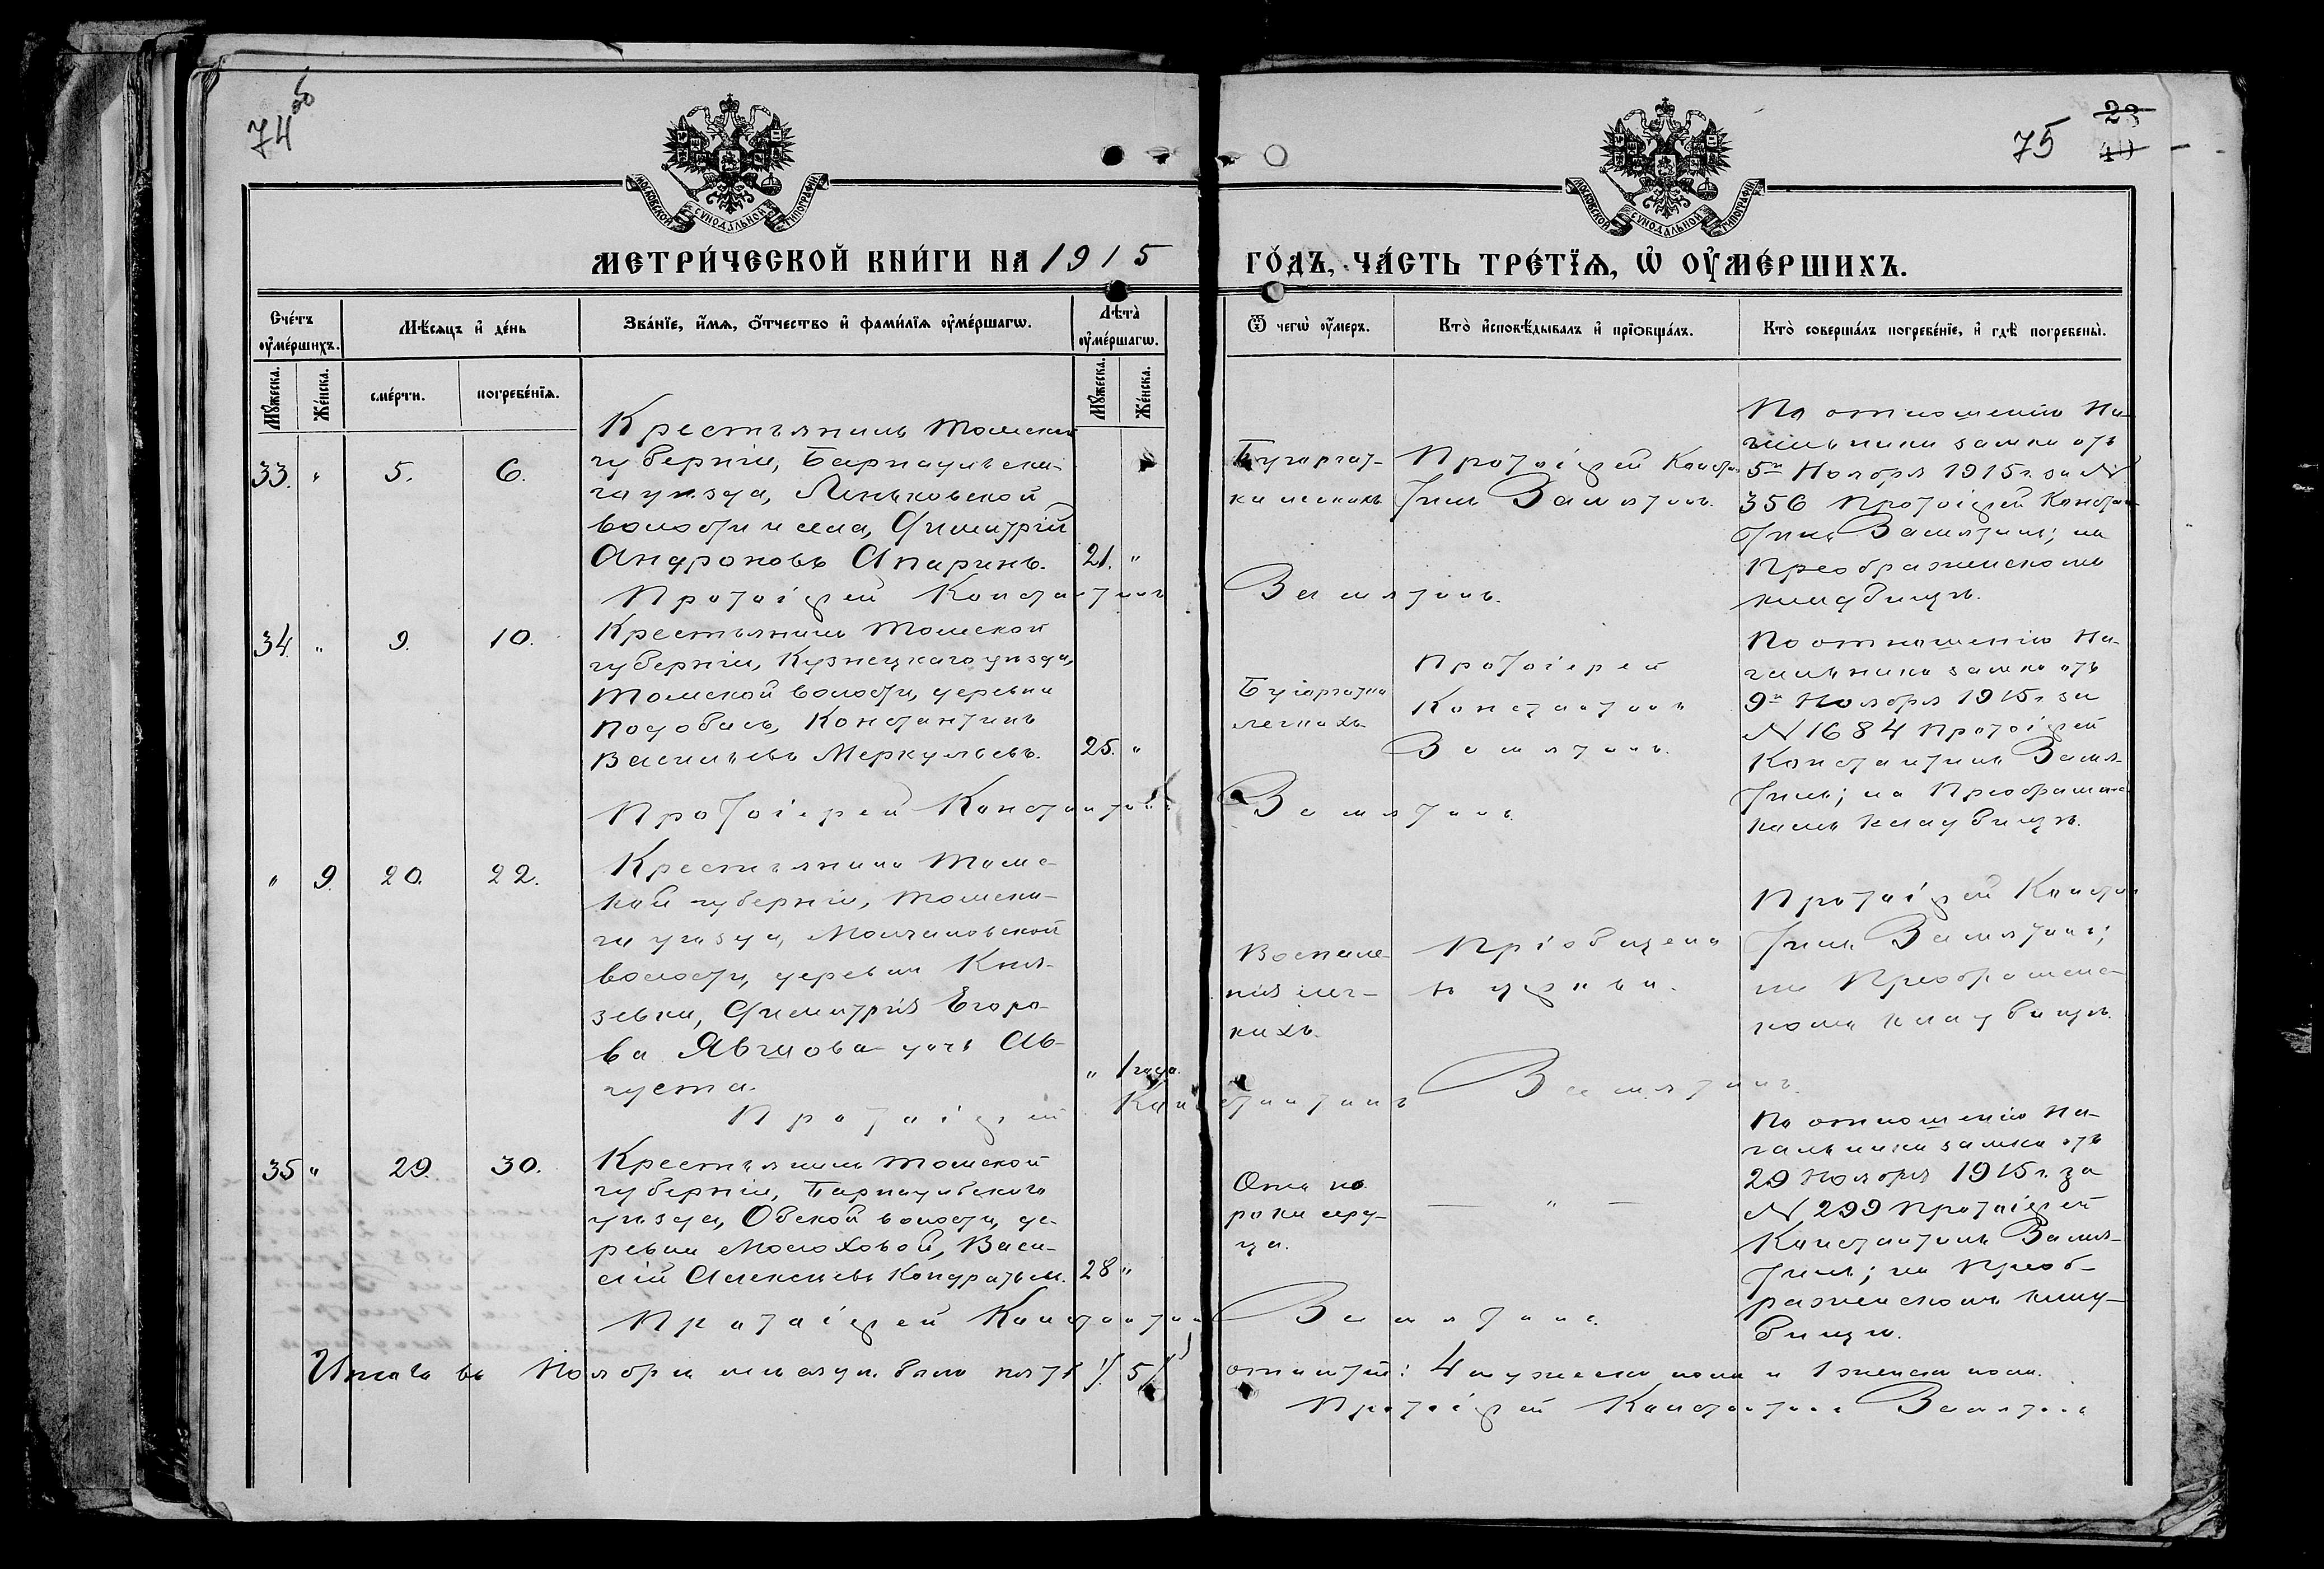 74 об
75
23
40
МОСКОВСКОЙ СѴНОДАЛЬНОЙ ТИПОГРАФІИ
МОСКОВСКОЙ СѴНОДАЛЬНОЙ ТИПОГРАФІИ
МЕТРИ́ЧЕСКОЙ КНИ́ГИ НА 1915
ГО́ДЪ, ЧА́СТЬ ТРЕ́ТЇѦ, Ѡ҆ ОУ҆МЕ́РШИХЪ.
Сче́тъ оу҆ме́ршихъ.
Мѣ́сѧцъ и҆ де́нь
Зва́нїе, и҆́мѧ, о҆́тчество и҆ фами́лїѧ оу҆ме́ршагѡ.
Лѣта̀ оу҆ме́ршагѡ.
Ѿ чегѡ̀ оу҆́меръ.
Кто̀ и҆сповѣ́дывалъ и҆ прїѡбща́лъ.
Кто̀ соверша́лъ погребе́нїе, и҆ гдѣ̀ погребены̀.
Мꙋ́жеска.
Же́нска.
сме́рти.
погребе́нїѧ.
Мꙋ́жеска.
Же́нска.
33. " 5. 6.
Крестьянинъ Томской
губерніи, Барнаульска-
го уѣзда, Леньковской
волости и села, Димитрій
Андроновъ Апаринъ. 21. "
Бугорчат-
ка легкихъ
Протоіерей Констан
тинъ Замятинъ.
По отношенію На-
чальника замка отъ
5го Ноября 1915 г. за №
356 Протоіерей Констан
тинъ Замятинъ; на
Преображенскомъ
кладбищѣ.
Протоіерей Константинъ Замятинъ.
34. " 9. 10.
Крестьянинъ Томской
губерніи, Кузнецкаго уѣзда,
Томской волости, деревни
Подобась, Константинъ
Васильевъ Меркульевъ. 25. "
Бугорчатка
легкихъ
Протоіерей
Константинъ
Замятинъ.
По отношенію На-
чальника замка отъ
9го Ноября 1915 г. за
№ 1684 Протоіерей
Константинъ Замя-
тинъ; на Преображенс
комъ кладбищѣ.
Протоіерей Константинъ Замятинъ
" 9. 20. 22.
Крестьянина Томс-
кой губерніи, Томска-
го уѣзда, Молчановской
волости, деревни Кня-
зевки, Димитрія Егоро-
ва дочь Ав-
густа. " 1 года.
Воспале-
нія лег-
кихъ.
Пріобщена
въ церкви.
Протоіерей Констан
тинъ Замятинъ;
на Преображенс-
комъ кладбищѣ.
Протоіерей Константинъ Замятинъ.
35 " 29. 30.
Крестьянинъ Томской
губерніи, Барнаульскаго
уѣзда, Обской волости, де-
ревни Молоховой, Васи-
лій Алексѣевъ Кондратьев. 28 "
Отъ по
рока серд-
ца.
— " —
По отношенію На-
чальника замка отъ
29 Ноября 1915 г. за
№ 299 Протоіерей
Константинъ Замя-
тинъ; на Преоб-
раженскомъ клад-
бищѣ.
Протоіерей Константинъ Замятинъ.
Итого въ Ноябрѣ мѣсяцѣ было пять /5/ отпѣтій: 4 мужеска пола и 1 женска пола.
Протоіерей Константинъ Замятинъ